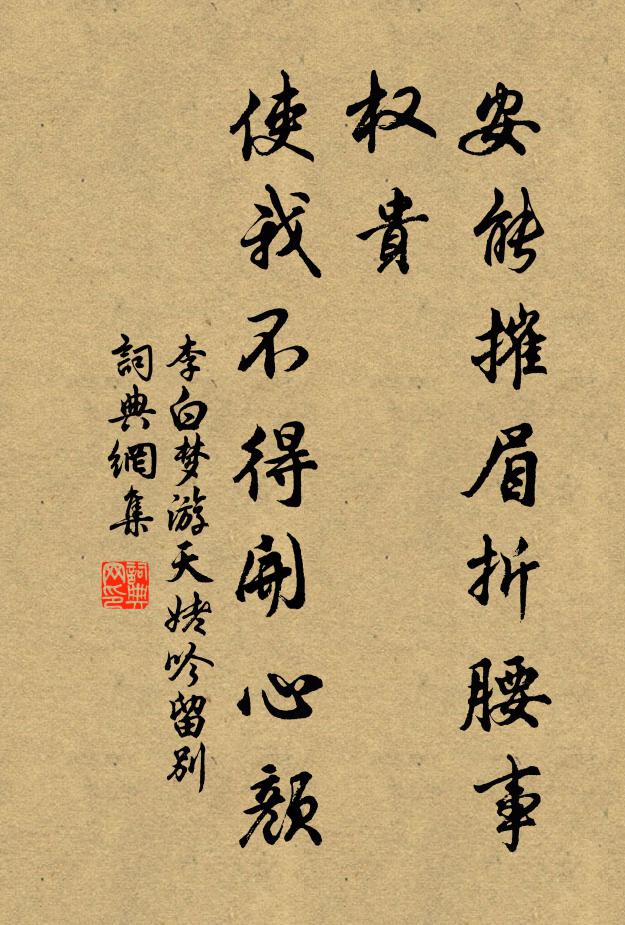 安能摧眉折腰事
权貴
使我不得開心颜
李白梦游天姥吟留别
詞典網集
詞典网印